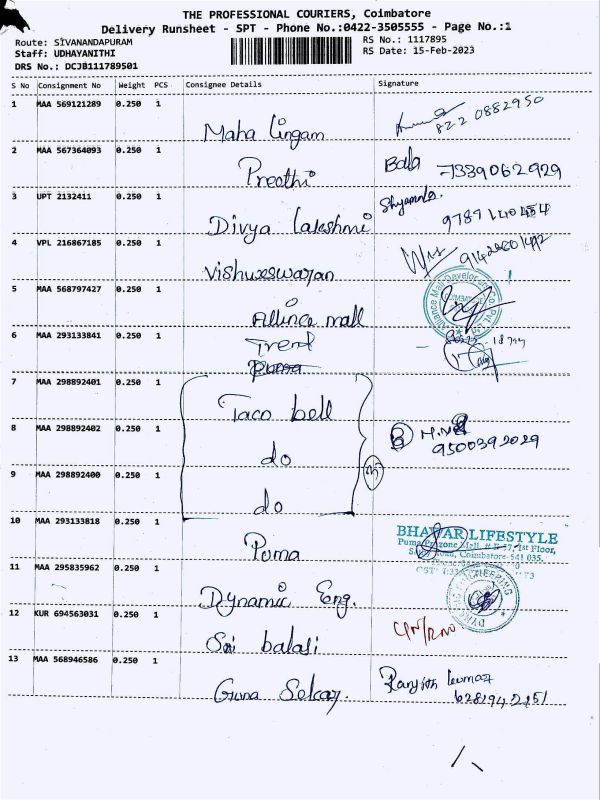 THE PROFESSIONAL COURIERS, Coimbatore
Delivery Runsheet - SPT - Phone No.:0422-3505555 - Page No.:1
Route: SIVANANDAPURAM RS No.: 1117895
Staff: UDHAYANITHI RS Date: 15-Feb-2023
DRS No.: DCJB111789501
S No Consignment No Weight PCS Consignee Details Signature
1 MAA 569121289 0.250 1
Maha lingam 822 0882950
2 MAA 567364093 0.250 1
Preethi Bala 7339062929
3 UPT 2132411 0.250 1
Divya lakshmi Shyamala. 9789140454
4 VPL 216867185 0.250 1
Vishuveswaran
5 MAA 568797427 0.250 1
Allince mall
6 MAA 293133841 0.250 1
Trend
Puma
7 MAA 298892401 0.250 1
Taco bell
8 MAA 298892402 0.250 1
do 9500392029
9 MAA 298892400 0.250 1
do
10 MAA 293133818 0.250 1
Puma BHAWAR LIFESTYLE
1st Floor,
Coimbatore-541 035.
11 MAA 295835962 0.250 1
Dynamic Eng.
12 KUR 694563031 0.250 1
Sri balaji
13 MAA 568946586 0.250 1
Guna Sekar Ranjith kumar